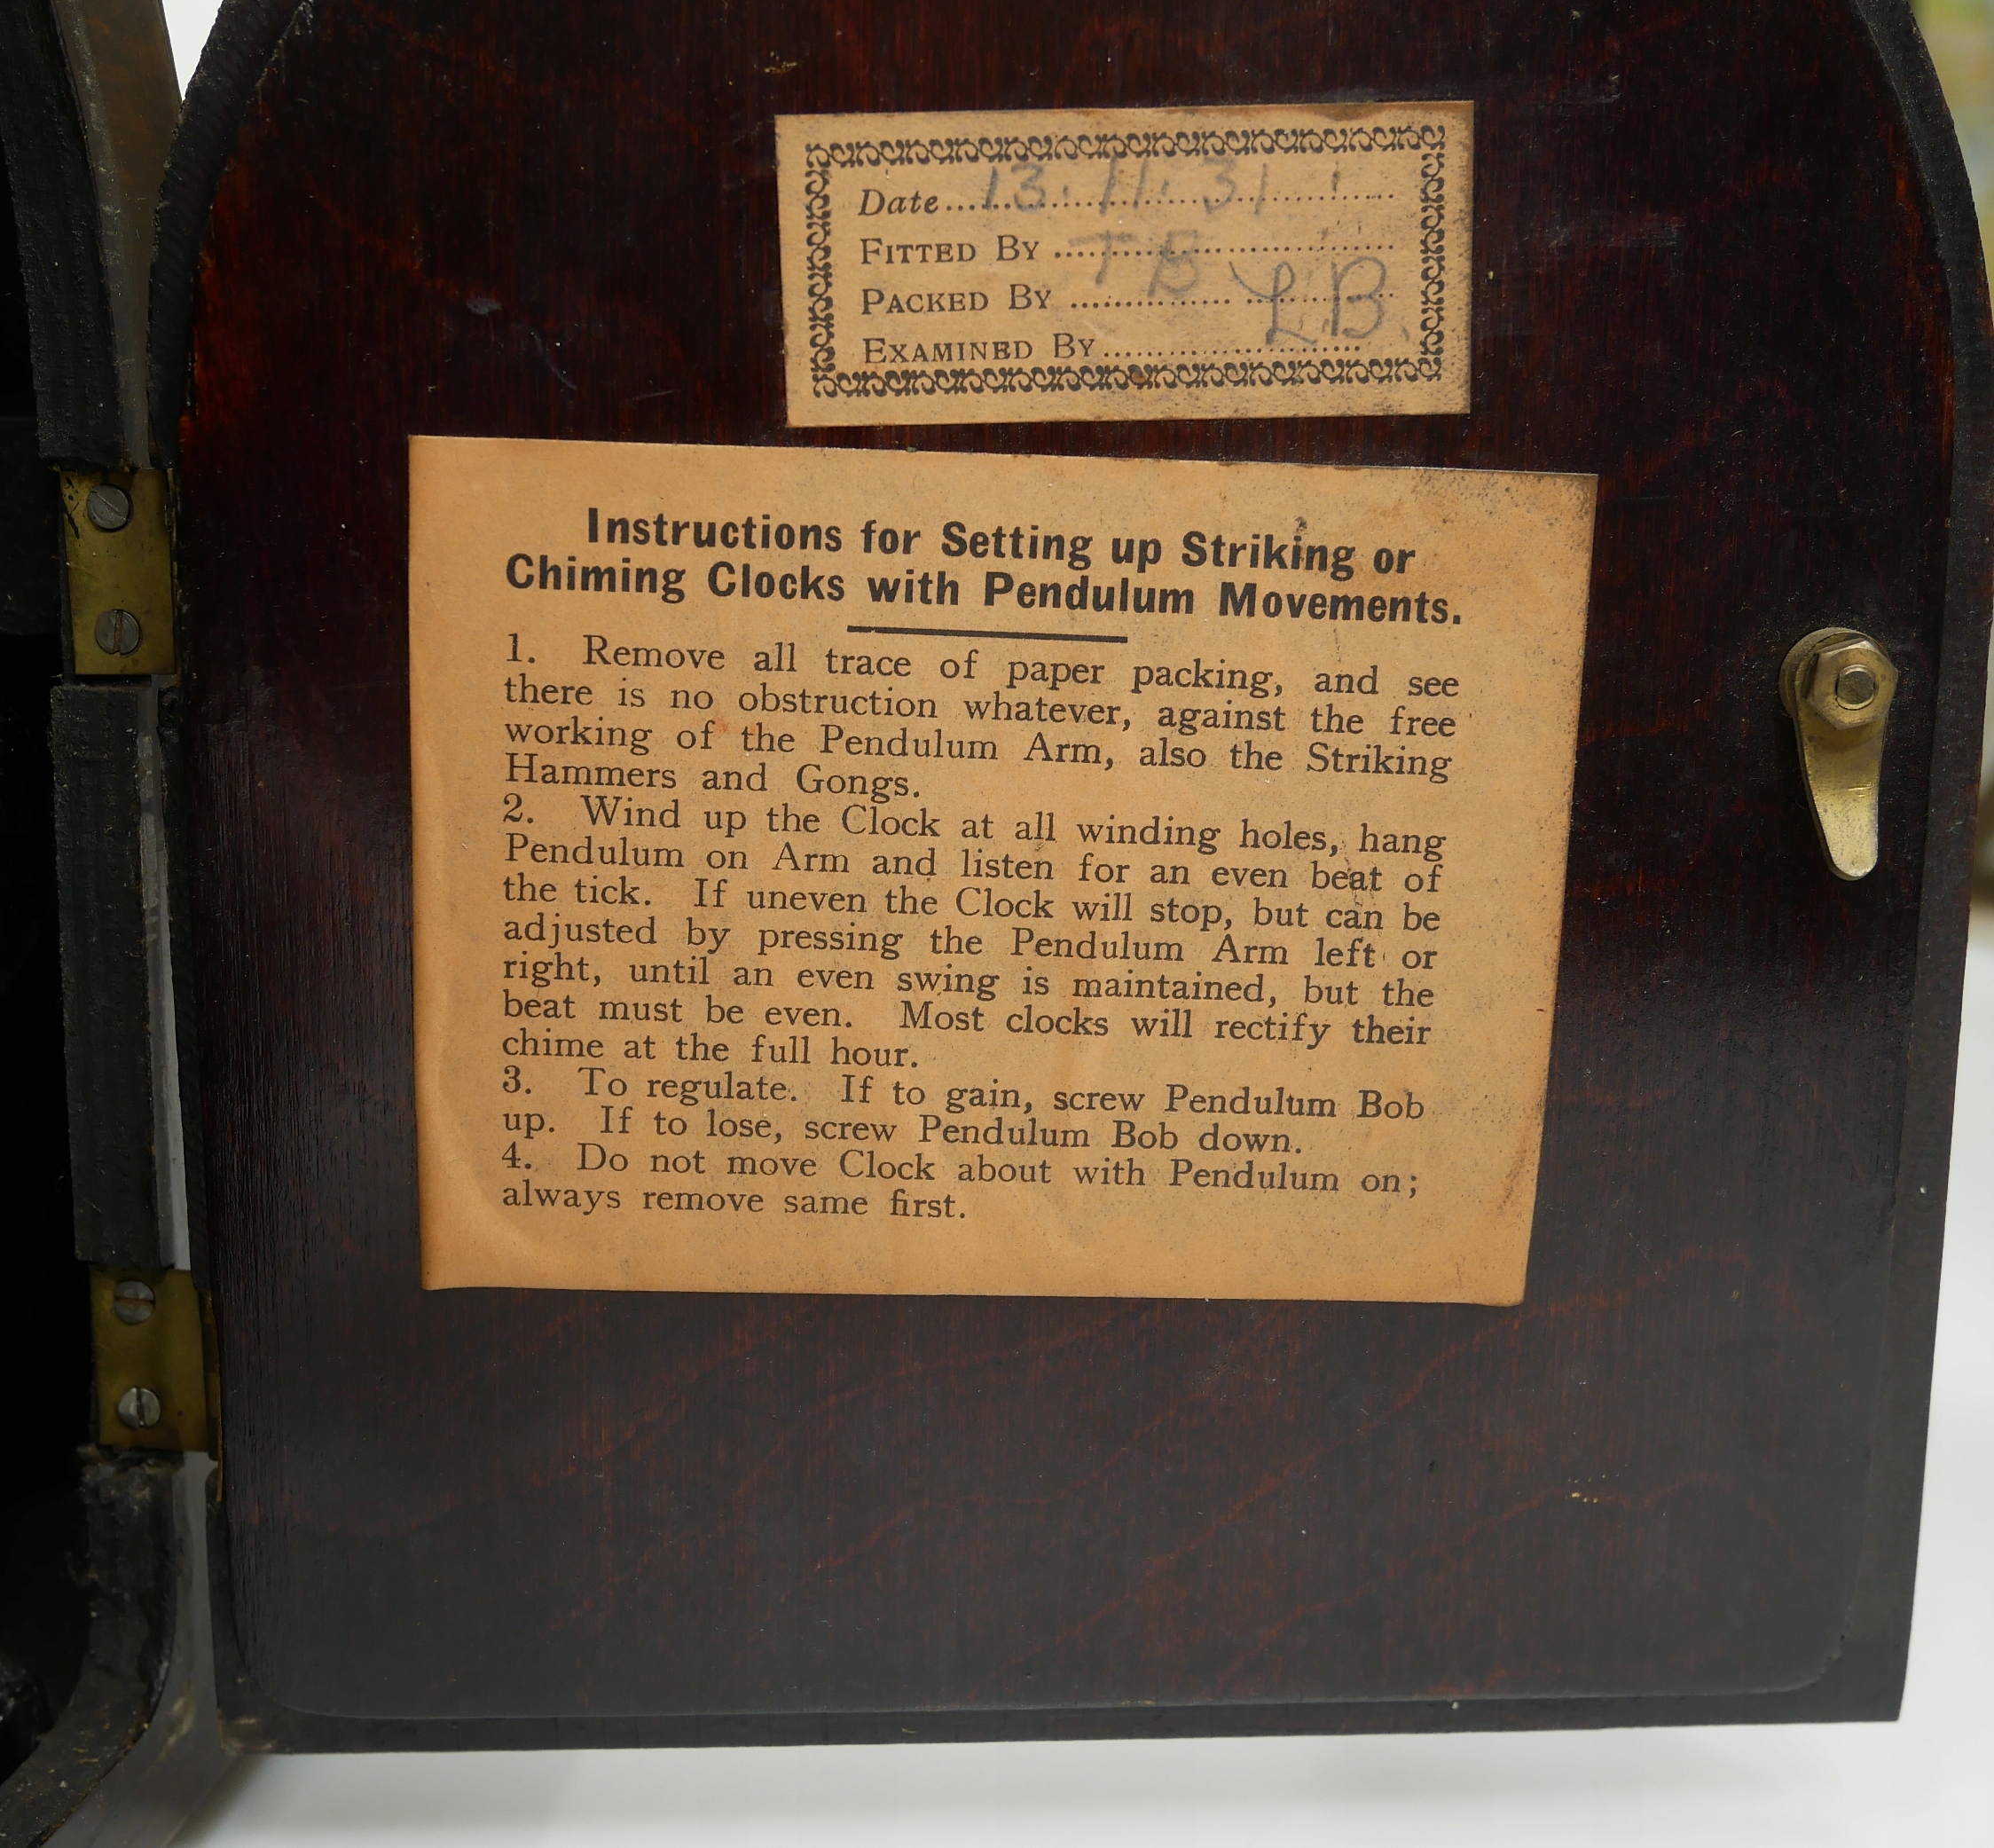 Date 13. 11. 31
FITTED BY T B
PACKED BY
EXAMINED BY L.B.
Instructions for Setting up Striking or
Chiming Clocks with Pendulum Movements.
1. Remove all trace of paper packing, and see
there is no obstruction whatever, against the free
working of the Pendulum Arm, also the Striking
Hammers and Gongs.
2. Wind up the Clock at all winding holes, hang
Pendulum on Arm and listen for an even beat of
the tick. If uneven the Clock will stop, but can be
adjusted by pressing the Pendulum Arm left or
right, until an even swing is maintained, but the
beat must be even. Most clocks will rectify their
chime at the full hour.
3. To regulate. If to gain, screw Pendulum Bob
up. If to lose, screw Pendulum Bob down.
4. Do not move Clock about with Pendulum on;
always remove same first.